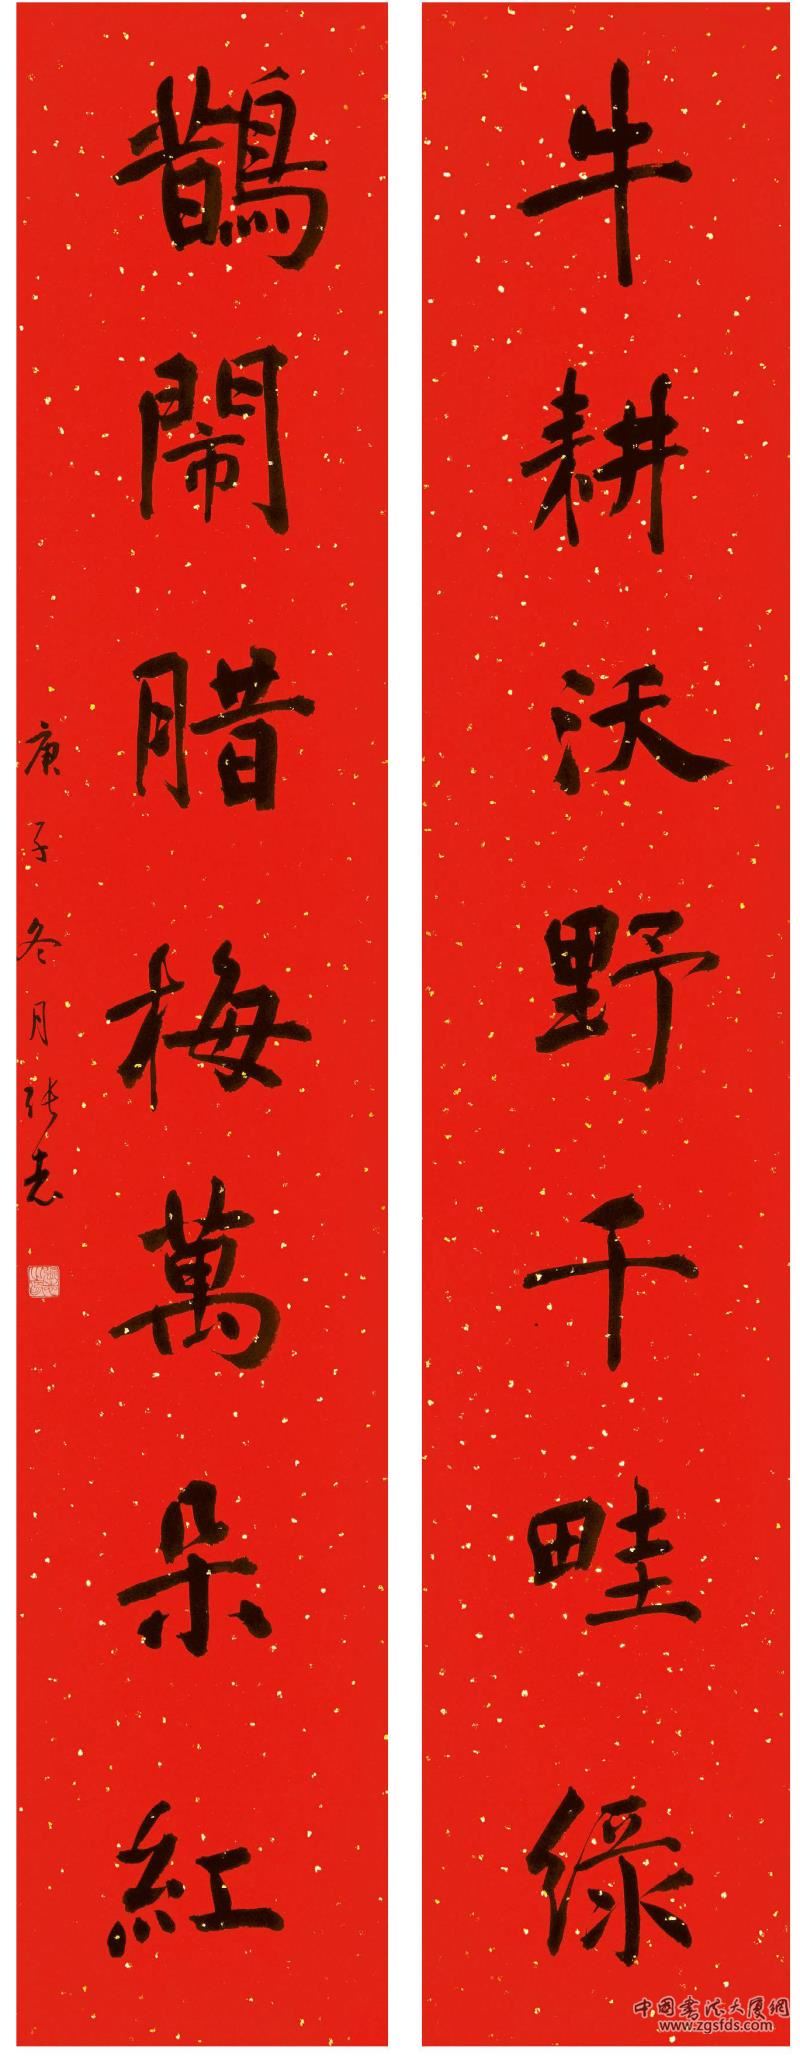 牛耕沃野千畦綠
鵲鬧腊梅萬朵紅
庚子冬月张志
中国书法大厦網
www.zgsfds.com